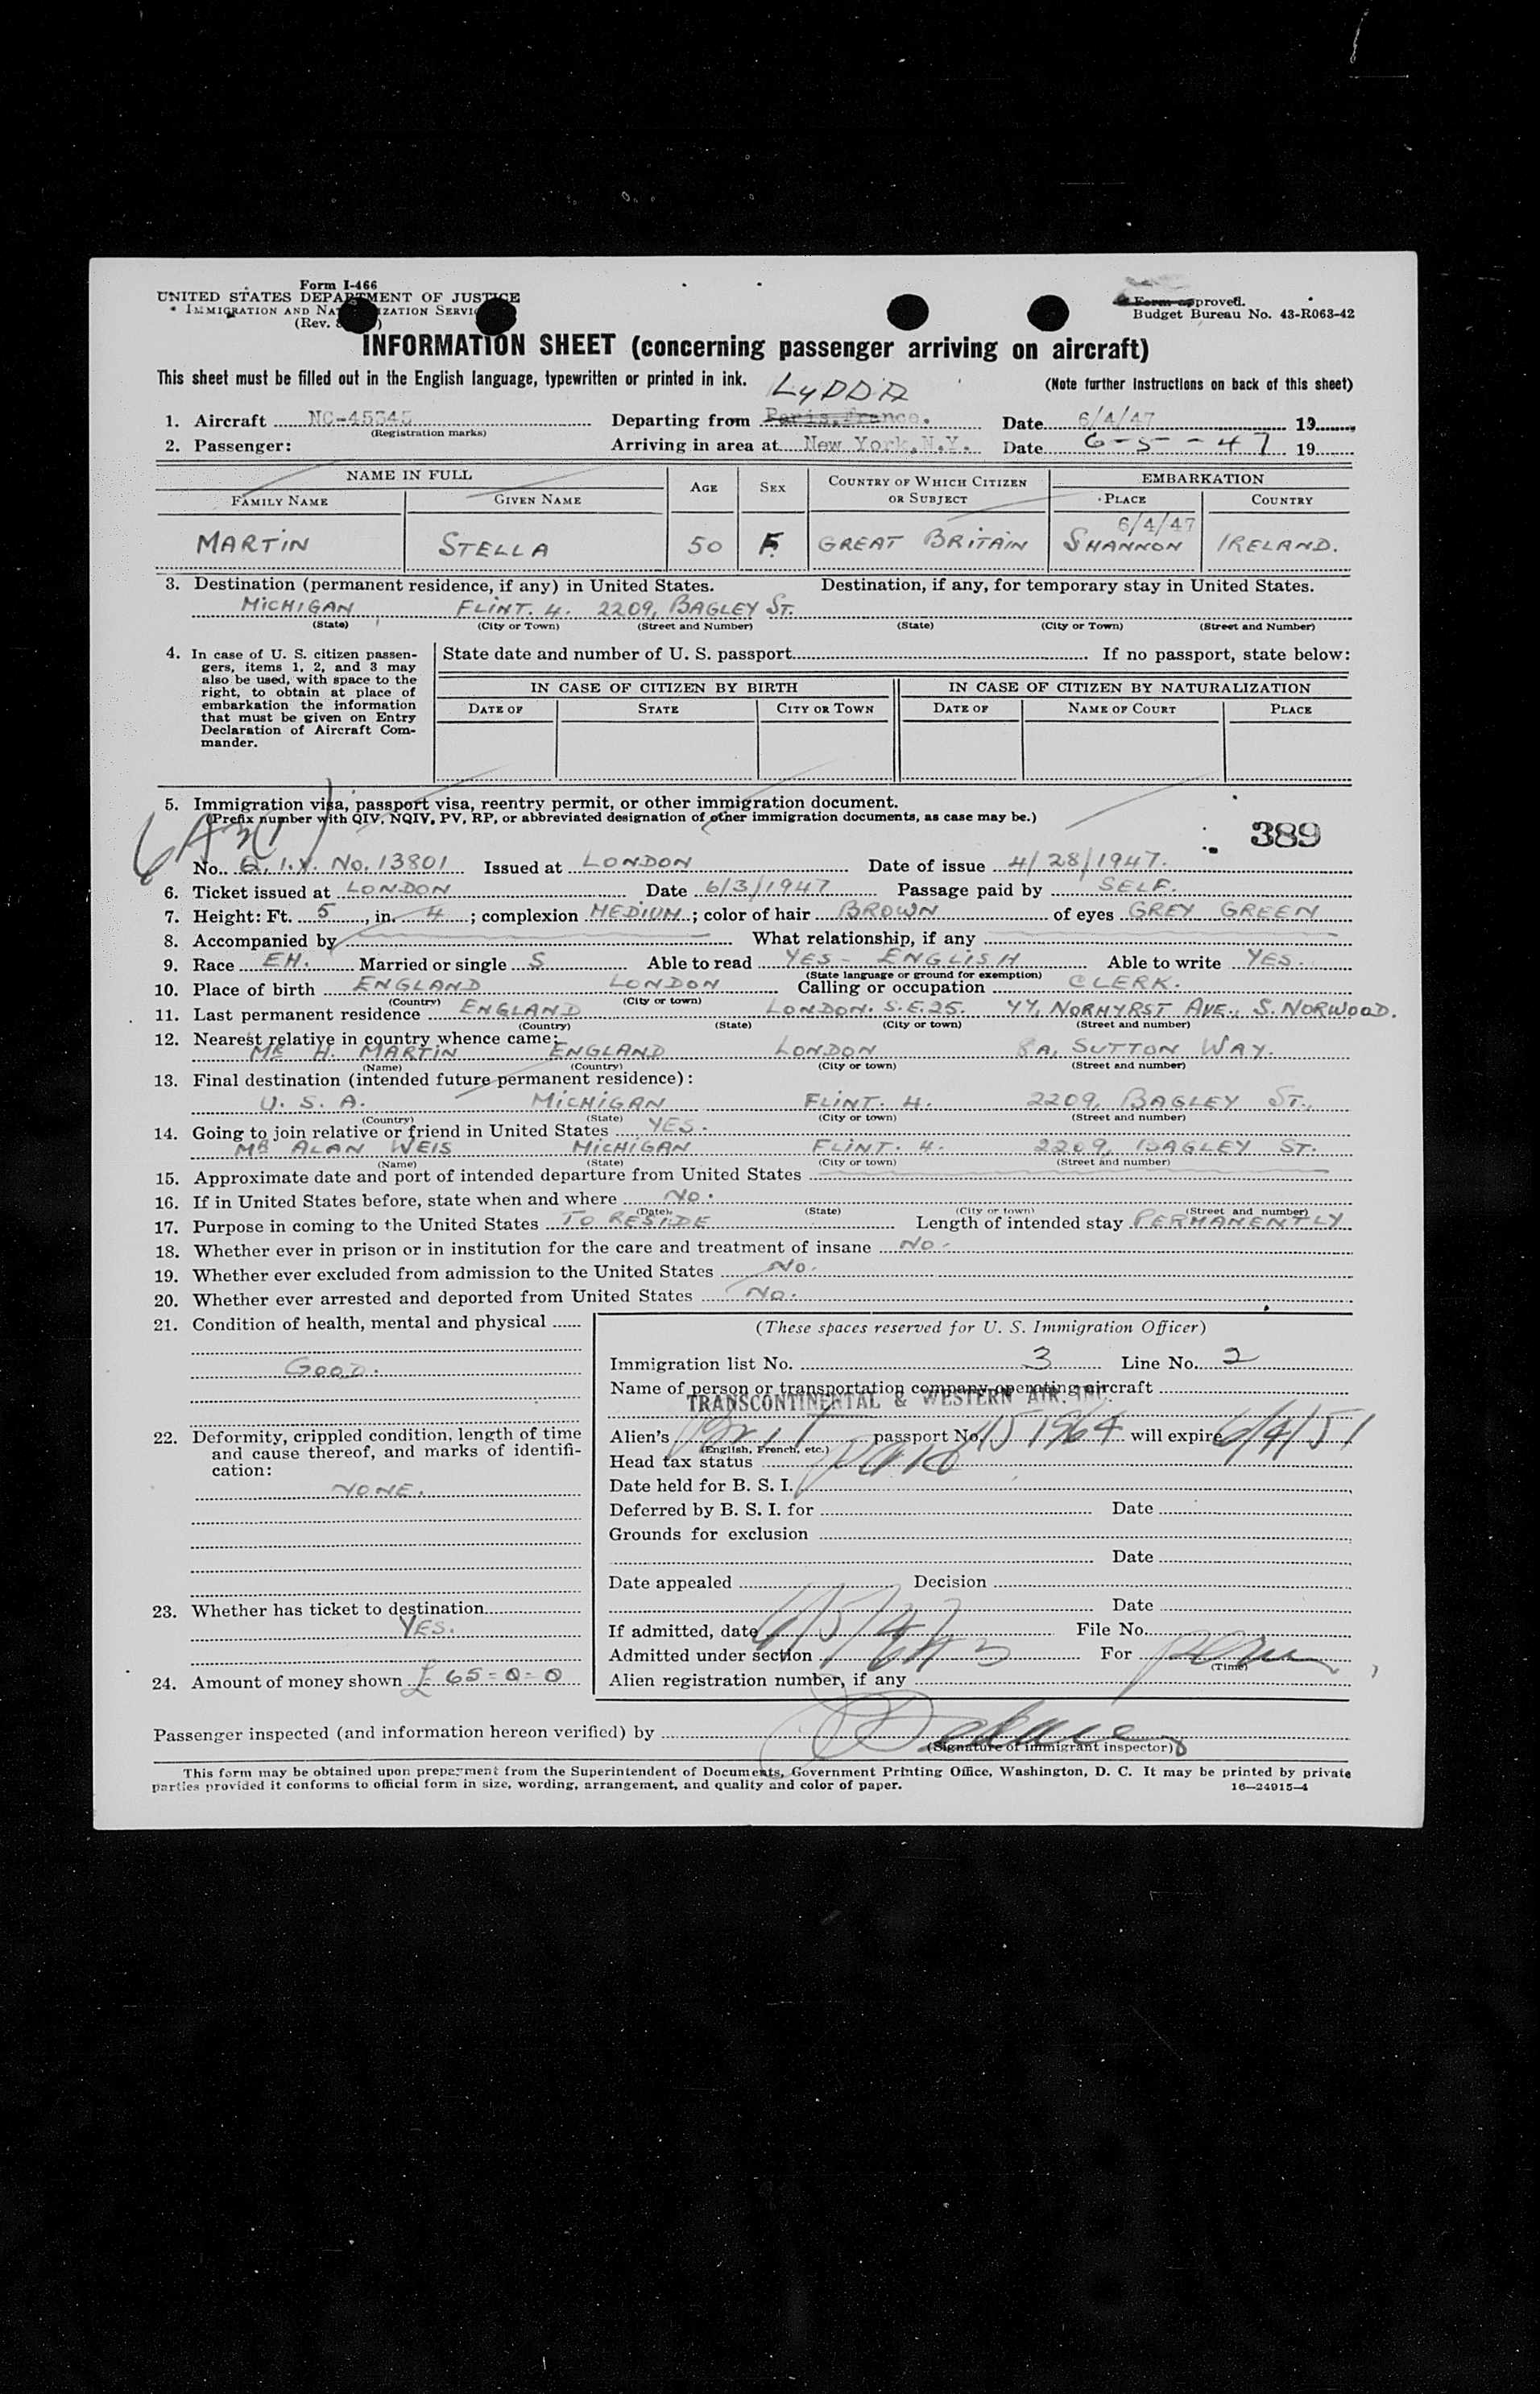 Form I-466
UNITED STATES DEPARTMENT OF JUSTICE
IMMIGRATION AND NATURALIZATION SERVICE
(Rev. )
Form approved.
Budget Bureau No. 43-R063-42
INFORMATION SHEET (concerning passenger arriving on aircraft)
This sheet must be filled out in the English language, typewritten or printed in ink. LYDDA (Note further instructions on back of this sheet)
1. Aircraft NC-45345 Departing from Paris, France. Date 6/4/47 19
(Registration marks)
2. Passenger: Arriving in area at New York, N.Y. Date 6-5-47 19
NAME IN FULL AGE SEX COUNTRY OF WHICH CITIZEN OR SUBJECT EMBARKATION
FAMILY NAME GIVEN NAME PLACE COUNTRY
6/4/47
MARTIN STELLA 50 F. GREAT BRITAIN SHANNON IRELAND.
3. Destination (permanent residence, if any) in United States. Destination, if any, for temporary stay in United States.
MICHIGAN FLINT. 4. 2209, BAGLEY ST.
(State) (City or Town) (Street and Number) (State) (City or Town) (Street and Number)
4. In case of U. S. citizen passen-
gers, items 1, 2, and 3 may
also be used, with space to the
right, to obtain at place of
embarkation the information
that must be given on Entry
Declaration of Aircraft Com-
mander.
State date and number of U. S. passport If no passport, state below:
IN CASE OF CITIZEN BY BIRTH IN CASE OF CITIZEN BY NATURALIZATION
DATE OF STATE CITY OR TOWN DATE OF NAME OF COURT PLACE
5. Immigration visa, passport visa, reentry permit, or other immigration document.
(Prefix number with QIV, NQIV, PV, RP, or abbreviated designation of other immigration documents, as case may be.)
389
No. Q.I.V. No. 13801 Issued at LONDON Date of issue 4/28/1947.
6. Ticket issued at LONDON Date 6/3/1947 Passage paid by SELF.
7. Height: Ft. 5, in. 4; complexion MEDIUM; color of hair BROWN of eyes GREY GREEN
8. Accompanied by What relationship, if any
9. Race EH. Married or single S Able to read YES - ENGLISH Able to write YES.
(State language or ground for exemption)
10. Place of birth ENGLAND LONDON Calling or occupation CLERK.
(Country) (City or town)
11. Last permanent residence ENGLAND LONDON. S.E.25. 47, NORHYRST AVE., S. NORWOOD.
(Country) (State) (City or town) (Street and number)
12. Nearest relative in country whence came:
MR H. MARTIN ENGLAND LONDON 8A, SUTTON WAY.
(Name) (Country) (City or town) (Street and number)
13. Final destination (intended future permanent residence):
U. S. A. MICHIGAN FLINT. 4. 2209, BAGLEY ST.,
(Country) (State) (City or town) (Street and number)
14. Going to join relative or friend in United States YES.
MR ALAN WEIS MICHIGAN FLINT. 4. 2209, BAGLEY ST.
(Name) (State) (City or town) (Street and number)
15. Approximate date and port of intended departure from United States
16. If in United States before, state when and where No.
(Date) (State) (City or town) (Street and number)
17. Purpose in coming to the United States TO RESIDE Length of intended stay PERMANENTLY
18. Whether ever in prison or in institution for the care and treatment of insane No -
19. Whether ever excluded from admission to the United States No.
20. Whether ever arrested and deported from United States No.
21. Condition of health, mental and physical
GOOD.
22. Deformity, crippled condition, length of time
and cause thereof, and marks of identifi-
cation:
NONE.
23. Whether has ticket to destination
YES.
24. Amount of money shown £ 65-0-0
(These spaces reserved for U. S. Immigration Officer)
Immigration list No. 3 Line No. 2
Name of person or transportation company operating aircraft
TRANSCONTINENTAL & WESTERN AIR. INC.
Alien's Brit passport No. 151964 will expire 6/4/51
(English, French, etc.)
Head tax status paid
Date held for B. S. I.
Deferred by B. S. I. for Date
Grounds for exclusion
Date
Date appealed Decision
Date
If admitted, date 6/5/47 File No.
Admitted under section For perm
(Time)
Alien registration number, if any
Passenger inspected (and information hereon verified) by
(Signature of immigrant inspector)
This form may be obtained upon prepayment from the Superintendent of Documents, Government Printing Office, Washington, D. C. It may be printed by private
parties provided it conforms to official form in size, wording, arrangement, and quality and color of paper.
16—24915-4